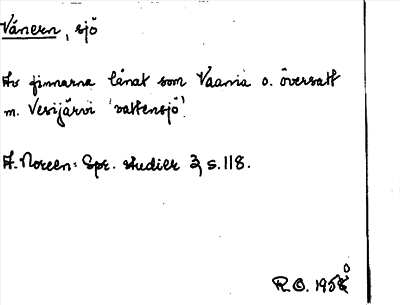 Vänern, sjö
Av finnarna lånat som Vaania o. översatt
m. Vesijärvi 'vattensjö'.
A. Noreen: Spr. studier 3, s. 118.
R. O. 1950